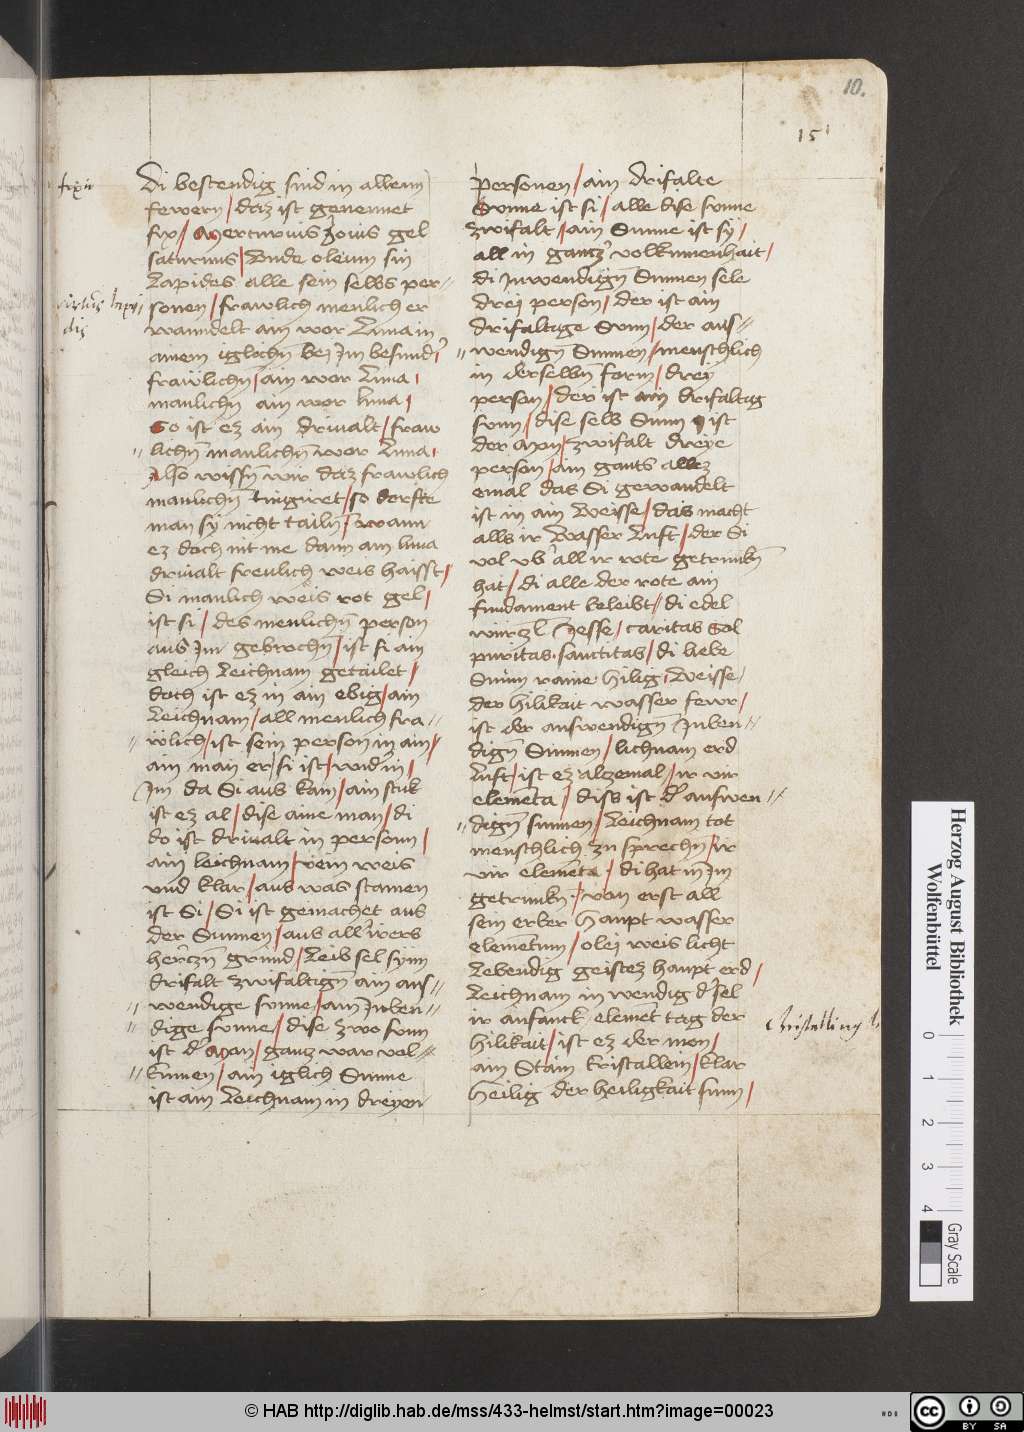 10.
15
fixu
di bestendig sind in allem
fewern / daz ist genennet
fix / Mercurius Jouis gel
saturnus / Vnde oleum sin
Lapides alle sein selbs per-
sonen / frawlich menlich er
wanndelt ain wor Luna in
ainem iglichn bei Im besund'
frawlichn / ain wor Luna /
manlichn ain wor luna /
So ist ez ain driualt / fraw
lichn manlichn wor Luna /
Also wissn wir daz frawlich
manlichn tinguret / so dorfte
man sy nicht tailn / wann
ez doch nit me dann ain luna
driualt freulich weis haisst /
Si manlich weis rot gel /
ist si / des menlichn person
aus Im gebrochn / ist si ain
gleich Leichnam getailet /
doch ist ez in ain ebig / ain
Leichnam / all menlich fra-
wlich / ist sein person in ain /
ain man er / si ist / wid in /
Im da Si aus kam / ain stuk
ist ez al / dise aine man / di
do ist driualt in personn /
ain leichnam / rein weis
vnd klar / aus was stamen
ist Si / Si ist gemachet aus
der Sunnen / aus all irers
herczn grund / Leib sel synn
drifalt zwifaltign ain aus-
wendige sunne / ain Inben-
dige sunne / dise zwo sunn
ist d' Man / gancz war vol-
kumen / ain iglich Sunne
ist ain Leichnam in dreyen
personen / ain drifalte
Sunne ist si / alle dise sunne
zwifalt / ain Sunne ist sy /
all in gantz' volkumenhait /
di Inwendign Sunnen sele
dreij person / der ist ain
drifaltige Sunn / der aus-
wendign Sunnen / menschlich
in derselbn form / dreÿ
person / der ist ain drifaltig
sunn / dise selb Sunn ist
der Mon / zwifalt dreye
person / ain gants allez
emal das Si gewandelt
ist in ain Weisse / das macht
alls ir Wasser Luft / der Si
vol vb' all ir rote getrunkn
hat / di alle der rote ain
fundament beleibt / di edel
wurczl Jesse / caritas Sol
puritas, sanctitas / di liebe
Sunn raine hilig, Weisse /
der hilikait wasser fewr /
ist der auswendign Inben-
dign Sunnen / lichnam erd
Luft / ist ez alzemal / ir vir
elementa / diss ist d' auswen-
dign sunnen / Leichnam tot
menschlich zu sprechn / ir
vir elementa / di hat in Im
getrunkn / von erst all
sein erber Haupt wasser
elementum / olei weis licht
Lebendig geistez haupt erd /
Leichnam in wendig d' sel
ir anfanck element tag der
hilikait / ist ez der mon /
ain Stain kristallein / klar
Heilig der heiligkait sunn /
Herzog August Bibliothek
Wolfenbüttel
0
1
2
3
4
Gray Scale
© HAB http://diglib.hab.de/mss/433-helmst/start.htm?image=00023
HAB
cc
BY SA